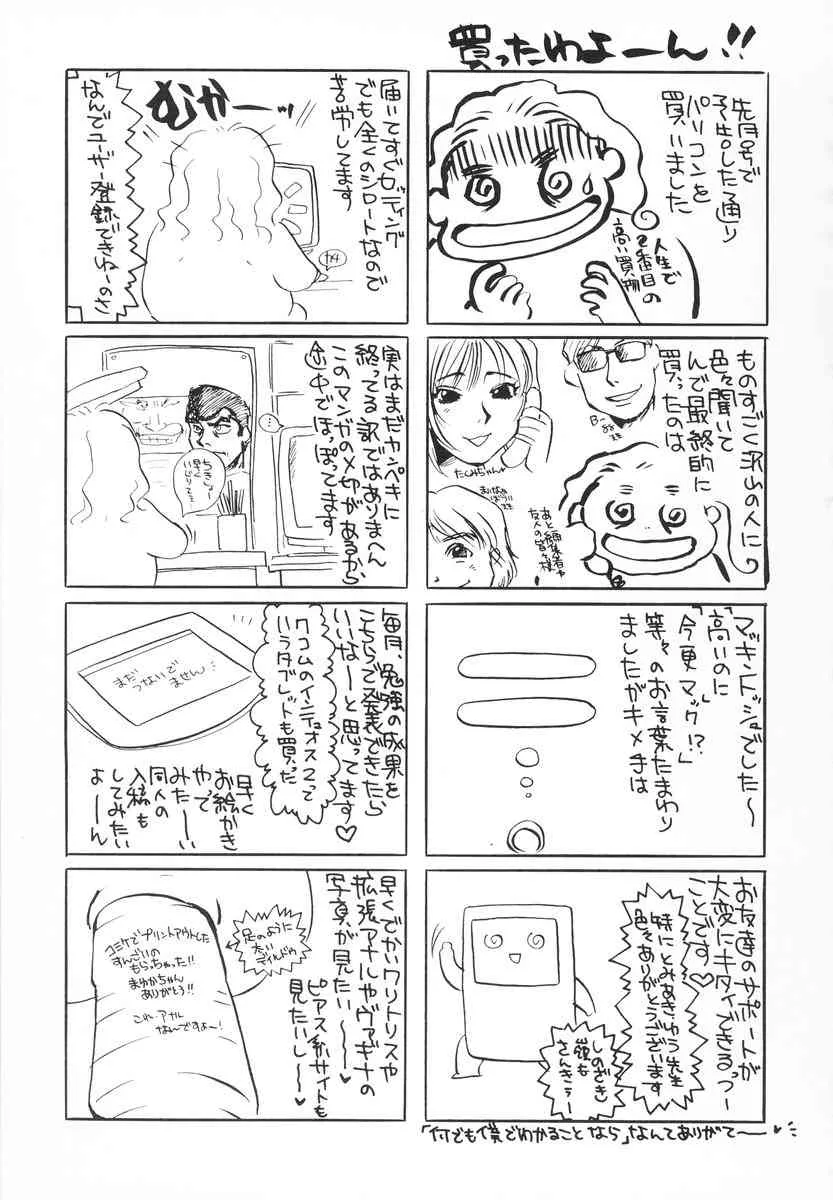 買ったわよーん!!
先月号で
予告した通り
パソコンを
買いました
人生で
2番目の
高い買物
ものすごく沢山の人に
色々聞いて
んで最終的に
買ったのは
たくみちゃん
あと編集者や
友人の皆々様
マッキントッシュでした〜
「高いのに」
「今更マック!?」
等々のお言葉たまわり
ましたがキメ手は
お友達のサポートが
大変にキタイできるっつー
ことです♡
特にとみあき・ゆう先生
色々ありがとうございます
しのざき
嶺も
さんきゅー
「何でも僕でわかることなら」なんてありがて〜〜♥
届いてすぐセッティング
でも全くのシロートなので
苦労してます
むかーッ
なんでユーザー登録できねーのさ
カチ
実はまだカンペキに
終ってる訳ではありまへん
このマンガの〆切があるから
途中でほっぽってます
ちきしょー
早く
いじりてェ
毎月、勉強の成果を
こちらで発表できたら
いいなーと思ってます♡
ワコムのインテュオス2って
いうタブレットも買った
まだつないで
ません…
早く
お絵かき
やって
みた〜い
同人の
入稿も
してみたい
よーん
早くでかいクリトリスや
拡張アナルやヴァギナの
写真が見たい〜〜♥
ピアス系サイトも
見たいし〜♥
足のように
太い
ディルドゥ
コミケでプリントアウトした
すんごいの
もらっちゃった!!
まゆかちゃん
ありがとう!!
これ、アナル
なんですよ〜!